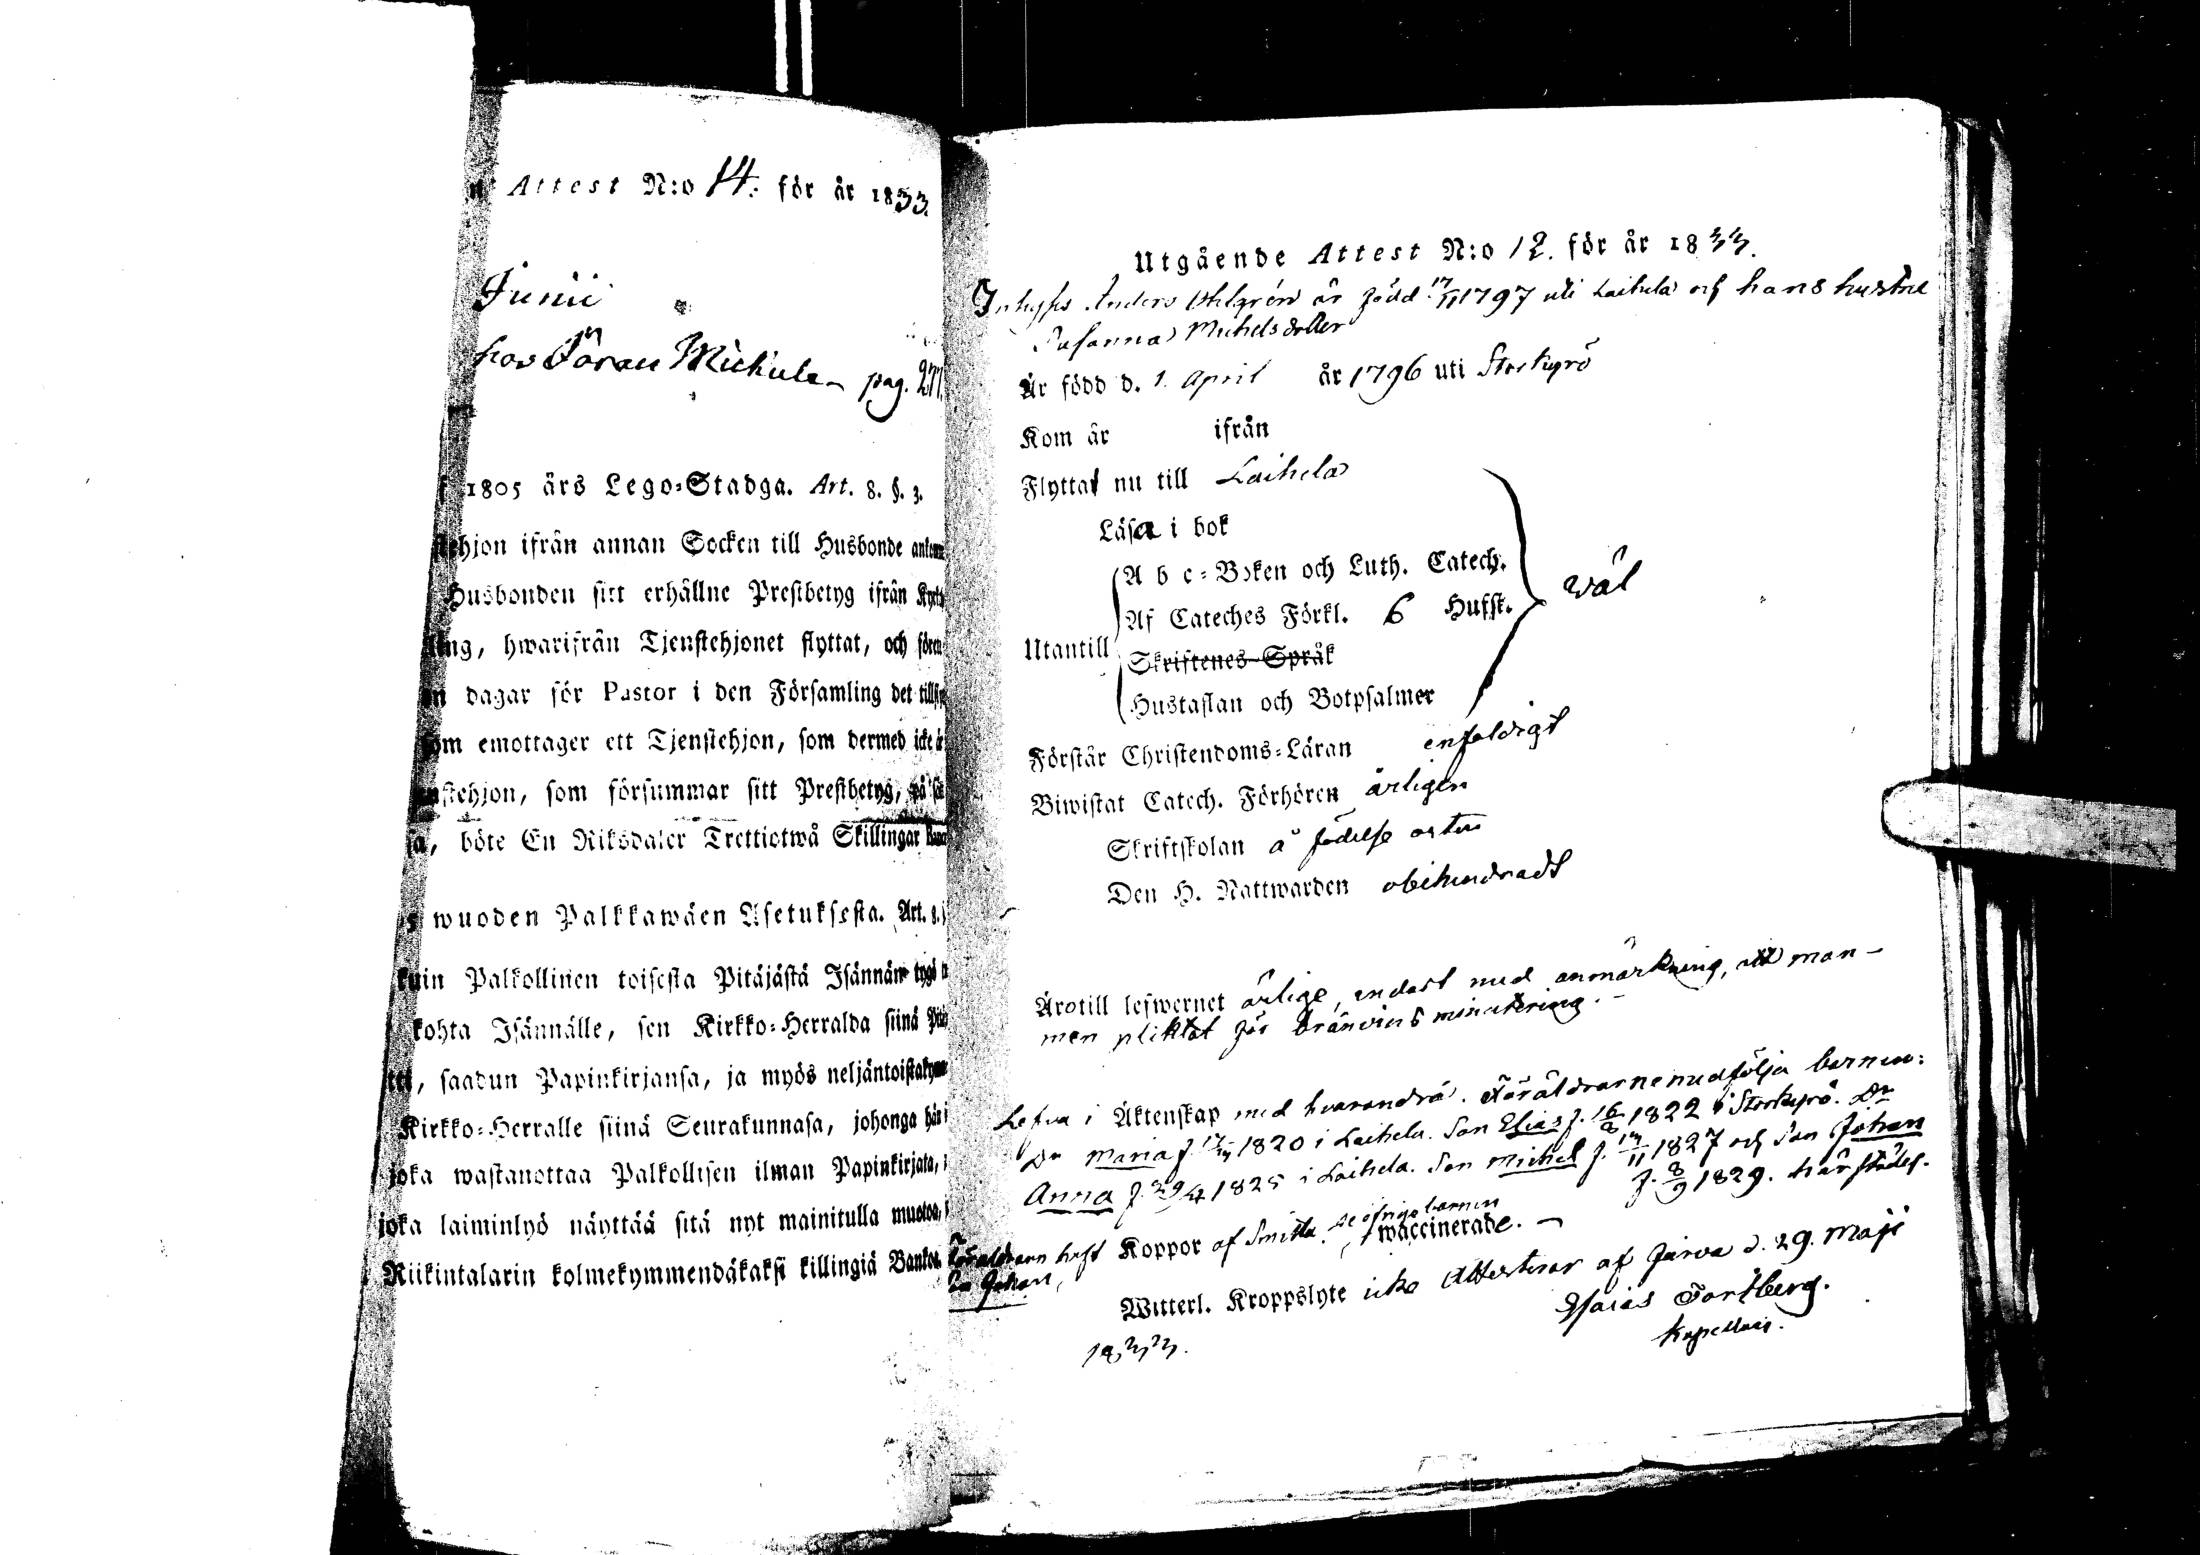 Attest N:o 14. för år 1833.
Junii
hos Jöran Michels pag. 277.
1805 års Lego-Stadga. Art. 8. §. 3.
stehjon ifrån annan Socken till Husbonde
Husbonden sitt erhållne Prestbetyg ifrån
ling, hwarifrån Tjenstehjonet flyttat, och
dagar för Pastor i den Församling det
som emottager ett Tjenstehjon, som dermed icke
nstehjon, som försummar sitt Prestbetyg, på
böte En Riksdaler Trettiotwå Skillingar
wuoden Palkkawäen Asetuksesta. Art. 8.
kuin Palkollinen toisesta Pitäjästä Isännän tygö
kohta Isännälle, sen Kirkko-Herralda siinä
saadun Papinkirjansa, ja myös neljäntoistakym
Kirkko-Herralle siinä Seurakunnasa, johonga hän
joka wastanottaa Palkollisen ilman Papinkirjata,
joka laiminlyö näyttää sitä nyt mainitulla muotoa,
Riikintalarin kolmekymmendäkaksi killingiä Bankos.
Utgående Attest N:o 12. för år 1833.
Inhyses Anders Ohlgrén är född 17/11 1797 uti Laihela och hans hustru
Susanna Michelsdotter
Är född d. 1. April år 1796 uti Storkyrö
Kom år ifrån
Flyttat nu till Laihela
Läsa i bok
A b c-Boken och Luth. Catech.
Af Cateches Förkl. 6 Hufst. wäl
Utantill
Skriftenes Språk
Hustaflan och Botpsalmer
Förstår Christendoms-Läran enfaldigt
Biwistat Catech. Förhören årligen
Skriftskolan å födelse orten
Den H. Nattwarden obehindradt
Ärotill lefwernet ärlige, endast med anmärkning, att man-
nen pliktat för bränvins minutering.-
Lefva i Äktenskap med hvarandra. Föräldrarne medfölja barnen:
Dr Maria f. 1820 i Laihela. Son Elias f. 16/8 1822 i Storkyrö. Dr
Anna f. 29/4 1825 i Laihela. Son Michel f. 17/11 1827 och Son Johan
f. 8/9 1829. härstädes.
Föräldrarn haft Koppor af Smitta. de öfriga barnen waccinerade. -
Johan,
Witterl. Kroppslyte icke Attesterar af Jurva d. 29. Maji
1833. Esaias Fortberg.
Kapellan.